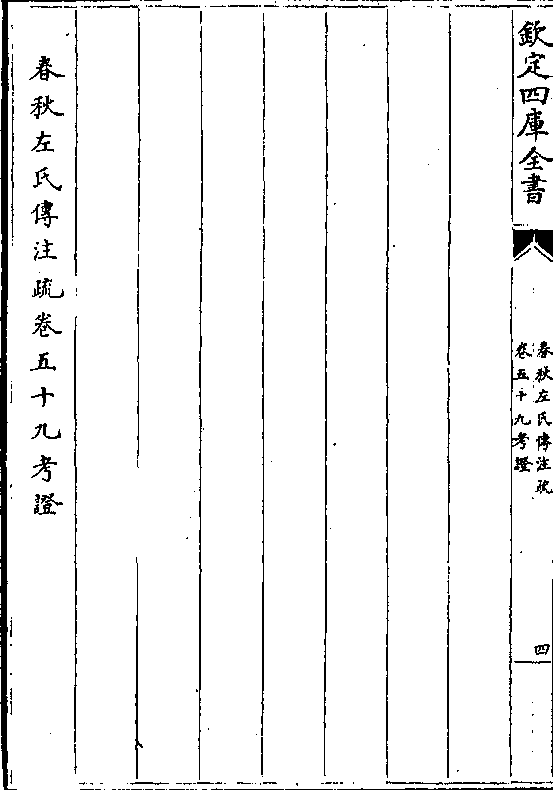 欽定四庫全書
春秋左氏傳注疏
卷五十九考證
四
春秋左氏傳注疏卷五十九考證